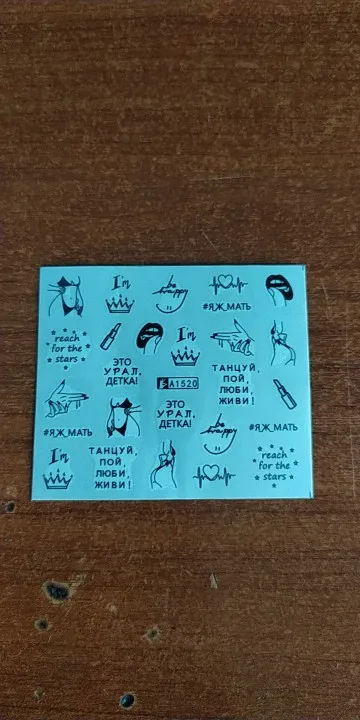 I'm
be
happy
#ЯЖ_МАТЬ
reach
for the
stars
I'm
ЭТО
УРАЛ,
ДЕТКА!
A1520
ТАНЦУЙ,
ПОЙ,
ЛЮБИ,
ЖИВИ!
ЭТО
УРАЛ,
ДЕТКА!
be
happy
#ЯЖ_МАТЬ
#ЯЖ_МАТЬ
I'm
ТАНЦУЙ,
ПОЙ,
ЛЮБИ,
ЖИВИ!
reach
for the
stars